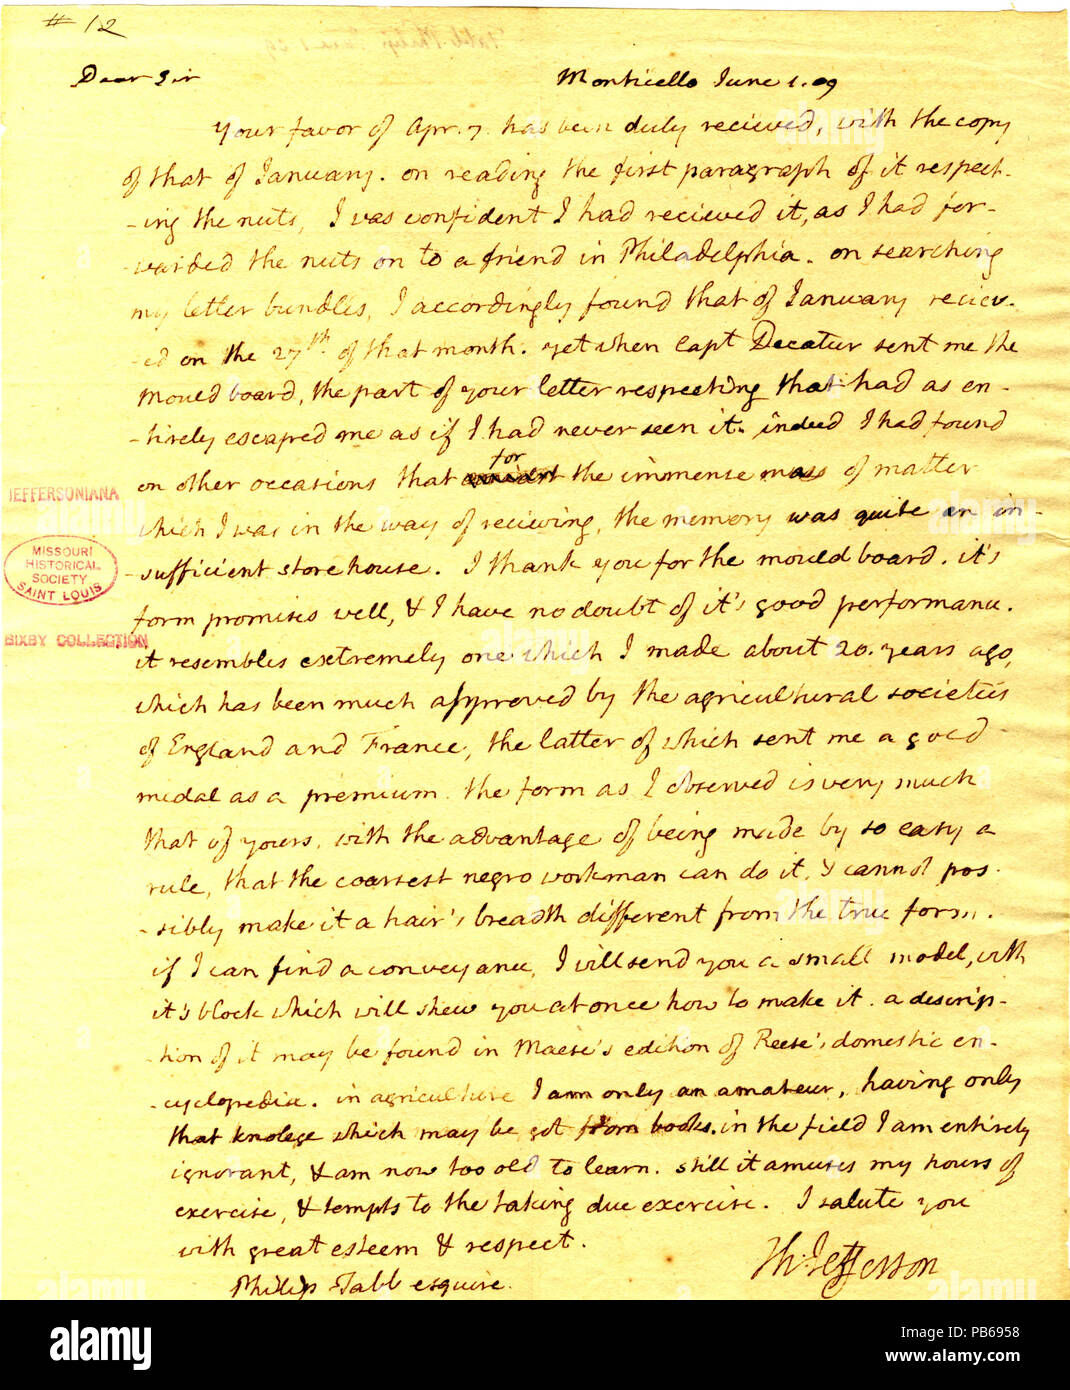 # 12
Dear Sir
Monticello June 1. 09
Your favor of Apr. 7. has been duly recieved, with the copy
of that of January. on reading the first paragraph of it respect-
-ing the nuts, I was confident I had recieved it, as I had for-
-warded the nuts on to a friend in Philadelphia. on searching
my letter bundles, I accordingly found that of January reciev-
-ed on the 27th. of that month. yet when Capt Decatur sent me the
mould board, the part of your letter respecting that had as en-
-tirely escaped me as if I had never seen it. indeed I had found
on other occasions that for the immense mass of matter
which I was in the way of recieving, the memory was quite an in-
-sufficient storehouse. I thank you for the mould board. it's
form promises well, & I have no doubt of it's good performance.
it resembles extremely one which I made about 20. years ago,
which has been much approved by the agricultural societies
of England and France, the latter of which sent me a gold
medal as a premium. the form as I observed is very much
that of yours, with the advantage of being made by so easy a
rule, that the coarsest negro workman can do it, & cannot pos-
-sibly make it a hair's breadth different from the true form.
if I can find a conveyance, I will send you a small model, with
it's block which will shew you at once how to make it. a descrip-
-tion of it may be found in Maese's edition of Reese's domestic en-
-cyclopedia. in agriculture I am only an amateur, having only
that knolege which may be got from books. in the field I am entirely
ignorant, & am now too old to learn. still it amuses my hours of
exercise, & tempts to the taking due exercise. I salute you
with great esteem & respect.
Th: Jefferson
Philip Tabb esquire.
JEFFERSONIANA
MISSOURI
HISTORICAL
SOCIETY
SAINT LOUIS
BIXBY COLLECTION
alamy
Image ID: PB6958
www.alamy.com